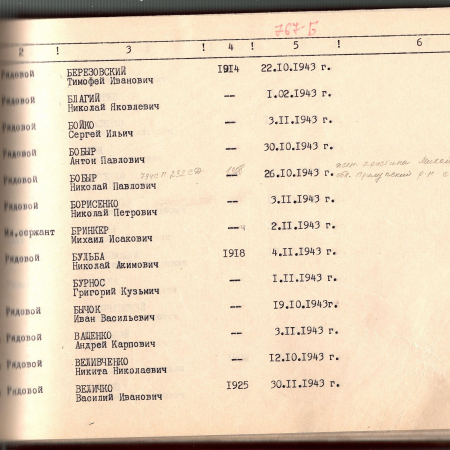 767-Б
2 ! 3 ! 4 ! 5 ! 6
Рядовой БЕРЕЗОВСКИЙ 1914 22.10.1943 г.
Тимофей Иванович
Рядовой БЛАГИЙ — I.02.1943 г.
Николай Яковлевич
Рядовой БОЙКО — 3.II.1943 г.
Сергей Ильич
Рядовой БОБЫР — 30.10.1943 г.
Антон Павлович
Рядовой БОБЫР — 26.10.1943 г.
Николай Павлович
Рядовой БОРИСЕНКО — 3.II.1943 г.
Николай Петрович
Мл.сержант БРИНКЕР — 2.II.1943 г.
Михаил Исакович
Рядовой БУЛЬБА 1918 4.II.1943 г.
Николай Акимович
БУРНОС — I.II.1943 г.
Григорий Кузьмич
Рядовой БЫЧОК — 19.10.1943г.
Иван Васильевич
Рядовой ВАЩЕНКО — 3.II.1943 г.
Андрей Карпович
Рядовой ВЕЛИВЧЕНКО — 12.10.1943 г.
Никита Николаевич
Рядовой ВЕЛИЧКО 1925 30.II.1943 г.
Василий Иванович